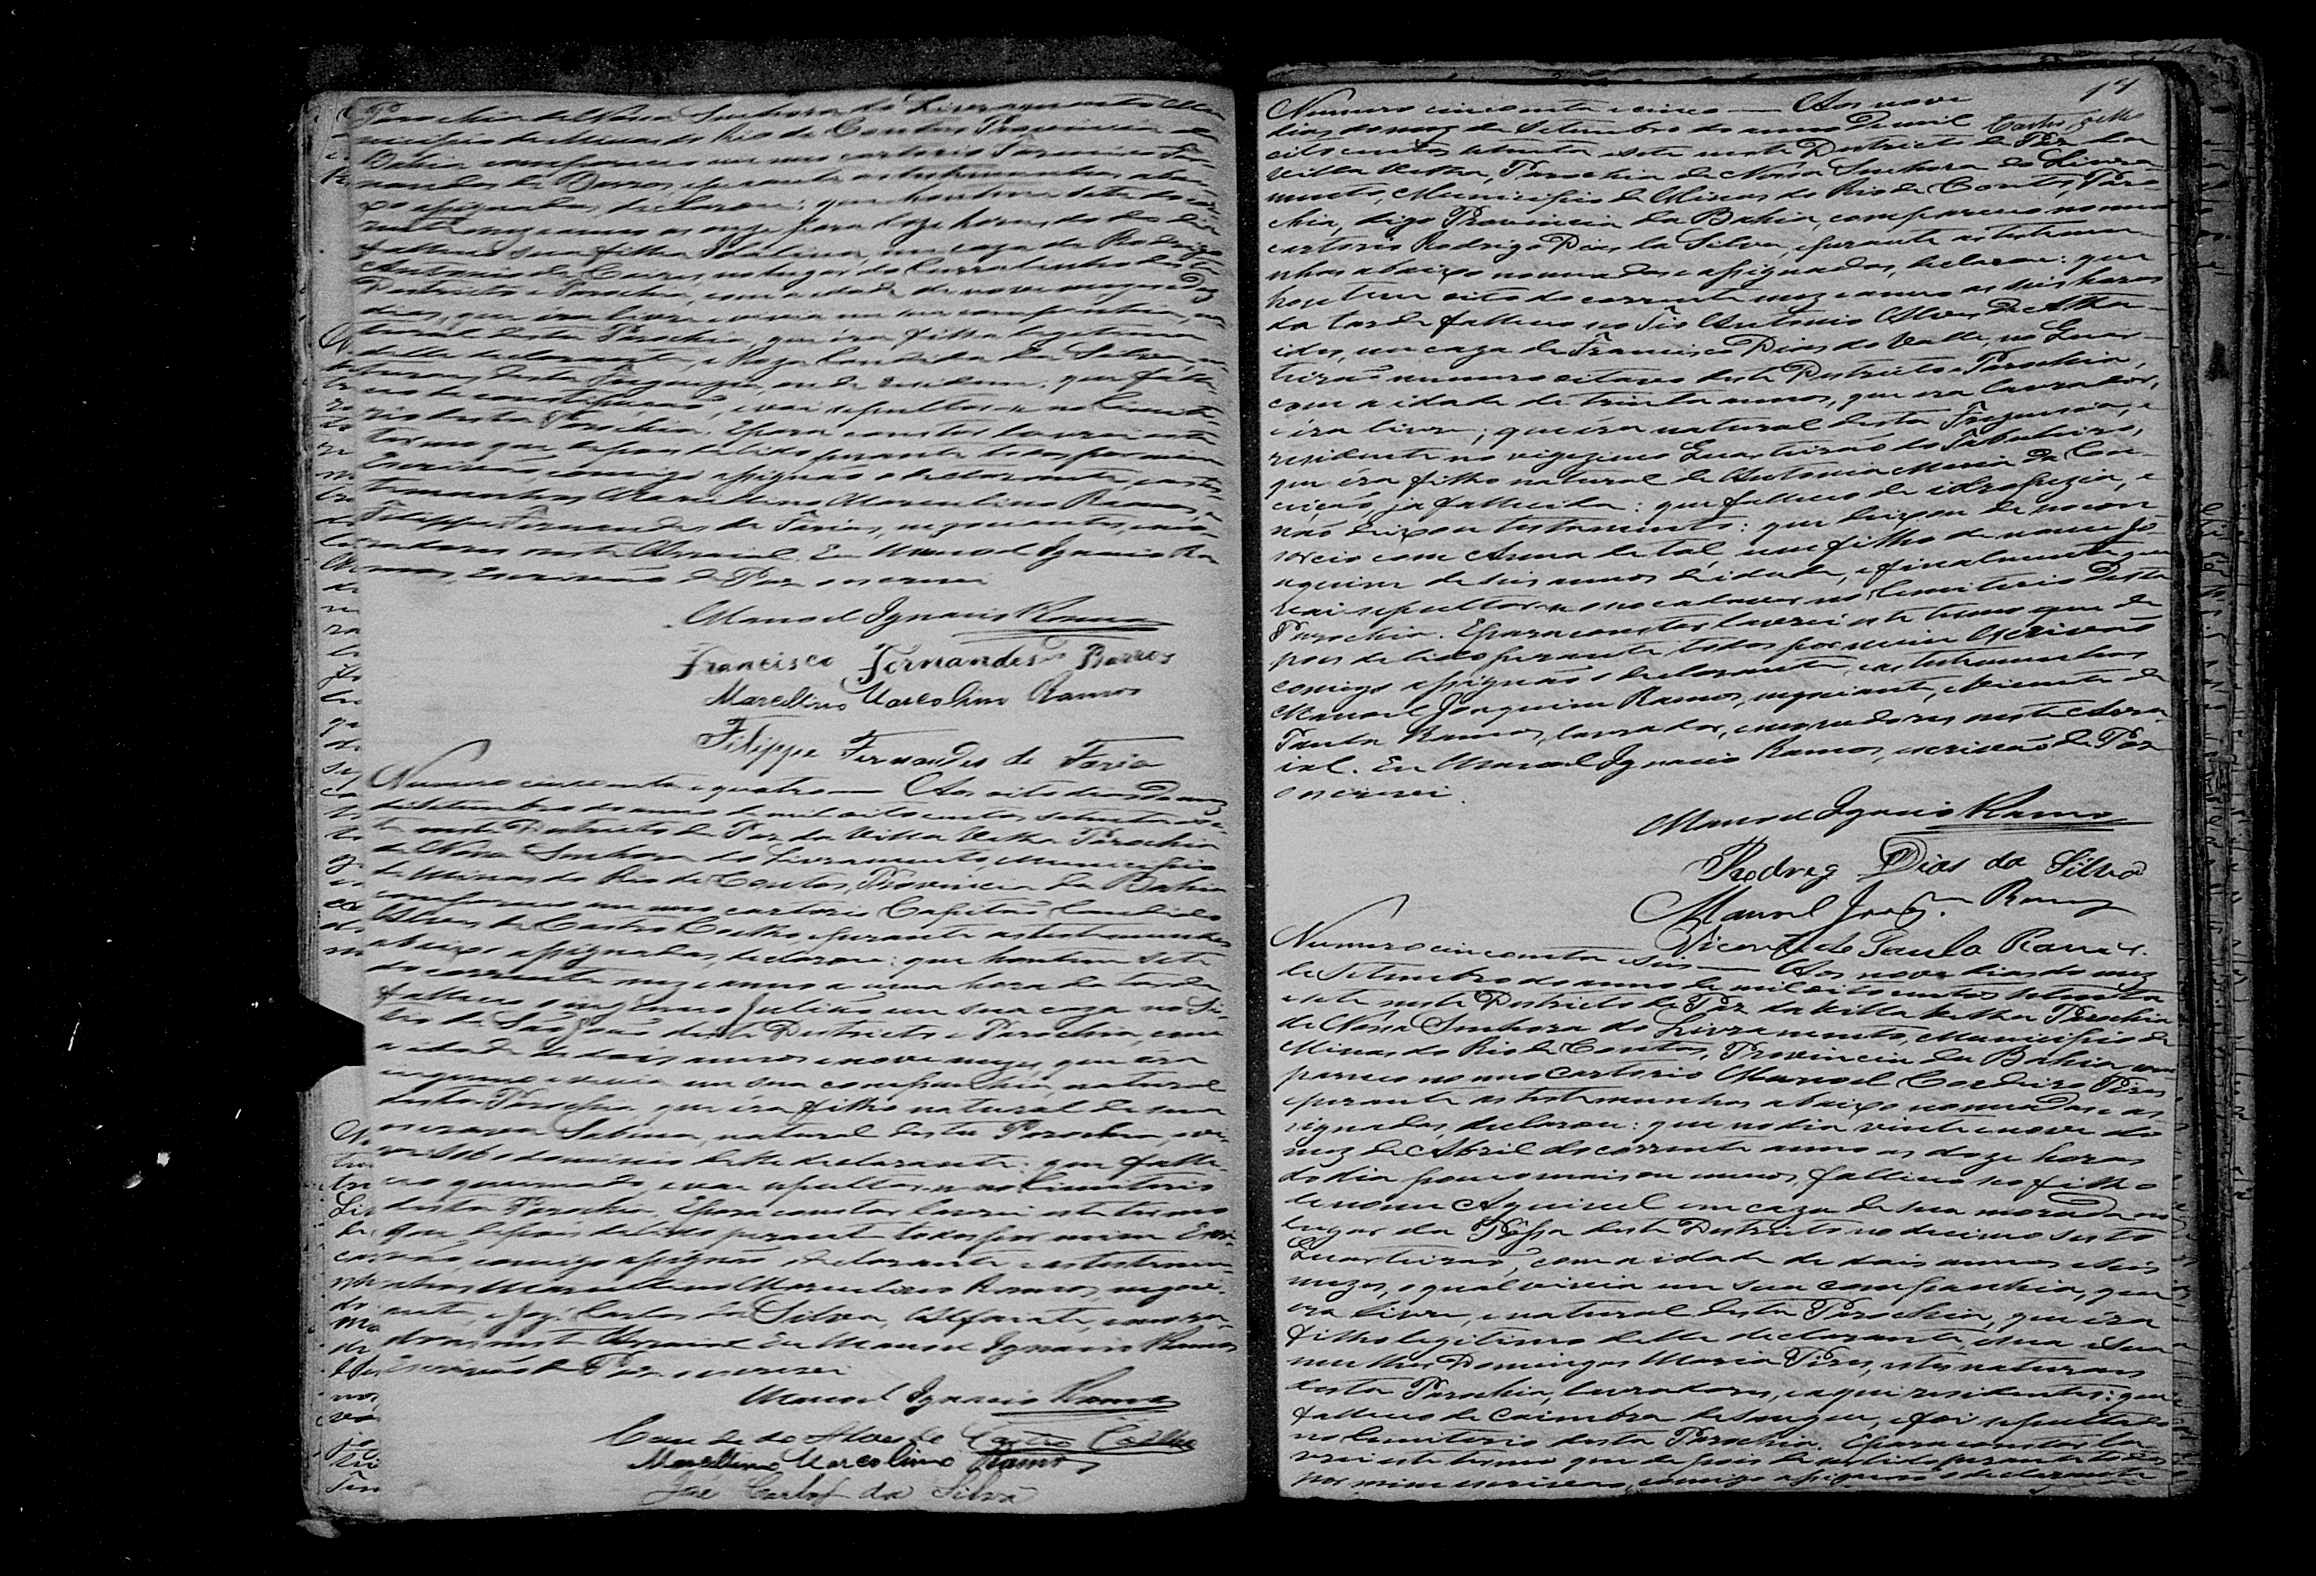 Parochia de Nossa Senhora do Livramento Mu
nicipio de Minas do Rio de Contas Provincia da
Bahia compareceu em meu cartorio Francisco Fer
nandes de Barros, e perante as testemunhas abai
xo assignadas, declarou: que hontem sete do cor
rente mez e anno as onze para doze horas do dia
falleceu sua filha Idalina, em caza de Rodrigo
Antonio de Caires, no lugar do Curralinho deste
Districto e Parochia, com a idade de nove mezes e
dias, que éra livre e vivia em sua companhia, na
tural desta Parochia, que éra filha legitima
delle declarante, e Roza Candida da Silva, na
turaes desta Freguezia, onde residem; que falle
ceu de constipação, e vai sepultar-se no Cemite
rio desta Parochia. E para constar lavrei este
termo que, depois de lido perante todos por mim
Escrivão, comigo assignão o declarante, e as tes
temunhas Marcellino Marcolino Ramos, e
Filippe Fernandes de Faria, negociantes, mo
radores neste Arraial. Eu Manoel Ignacio Ra
mos, Escrivão de Paz o escrevi
Manoel Ignacio Ramos
Francisco Fernandes Barros
Marcellino Marcolino Ramos
Filippe Fernandes de Faria
Numero cincoenta e quatro — Aos oito dias do mez
de Setembro do anno de mil oito centos setenta e se
te neste Districto de Paz da Villa Velha Parochia
de Nossa Senhora do Livramento, Municipio
de Minas do Rio de Contas, Provincia da Bahia
compareceu em meu cartorio Capitão Candido
Alves de Castro Coelho, e perante as testemunhas
abaixo assignadas, declarou: que hontem sete
do corrente mez e anno a uma hora da tarde
falleceu o ingenuo Julião em sua caza no Si
tio de São João deste Districto e Parochia, com
a idade de dois annos e nove mezes, que era
ingenuo e vivia em sua companhia, natural
desta Parochia, que éra filho natural de sua
escrava Sabina, natural desta Parochia, e vi
ve sob o dominio delle declarante: que falle
ceo queimado, e vae sepultar-se no Cemiterio
desta Parochia. E para constar lavrei este termo
que, depois de lido perante todos por mim Escri
vão, comigo assignão o declarante e as testemu
nhas Marcellino Marcolino Ramos, negoci
ante, e José Carlos da Silva, Alfaiate, mora
dores neste Arraial. Eu Manoel Ignacio Ramos
Escrivão de Paz o escrevi
Manoel Ignacio Ramos
Candido Alves de Castro Coelho
Marcellino Marcolino Ramos
José Carlos da Silva
14
Numero cincoenta e cinco — Aos nove
dias do mez de Setembro do anno de mil
oito centos setenta e sete neste Districto de Paz da
Villa Velha, Parochia de Nossa Senhora do Livra
mento, Municipio de Minas do Rio de Contas, Paro
chia, digo Provincia da Bahia, compareceu no meu
cartorio Rodrigo Dias da Silva, e perante as testemu
nhas abaixo nomeadas e assignadas, declarou: que
hontem oito do corrente mez e anno as seis horas
da tarde falleceu seo Tio Antonio Alves de Alme
ida, em caza de Francisco Dias do Valle, no Quar
teirão numero oitavo deste Districto e Parochia,
com a idade de trinta annos, que era lavrador,
e éra livre; que éra natural desta Freguezia, e
residente no vigezimo Quarteirão do Taboleiro,
que éra filho natural de Antonia Maria da Con
ceição, ja fallecida: que falleceu de idropezia, e
não deixou testamento: que deixou de seo con
sorcio com Anna de tal um filho de nome Jo
aquim de seis annos de idade, e finalmente que
vai sepultar-se o seo cadaver no Cemiterio desta
Parochia. E para constar lavrei este termo que de
pois de lido perante todos por mim Escrivão
comigo assignão o declarante, e as testemunhas
Manoel Joaquim Ramos, negociante, e Vicente de
Paula Ramos, lavrador, e moradores neste Arra
ial. Eu Manoel Ignacio Ramos, escrivão de Paz
o escrevi.
Manoel Ignacio Ramos
Rodrigo Dias da Silva
Manoel Joaqm. Ramos
Vicente de Paula Ramos.
Numero cincoenta e seis — Aos nove dias do mez
de Setembro do anno de mil oito centos setenta
e sete neste Districto de Paz da Villa Velha Parochia
de Nossa Senhora do Livramento, Municipio de
Minas do Rio de Contas, Provincia da Bahia, com
pareceo no meo Cartorio Manoel Cordeiro Pires
e perante as testemunhas abaixo nomeadas e as
signadas, declarou: que no dia vinte e nove do
mez de Abril do corrente anno as doze horas
do dia pouco mais ou menos, falleceu seo filho
de nome Aquivel em caza de sua morada no
lugar da deste Districto no decimo sexto
Quarteirão, com a idade de dois annos e seis
mezes, o qual vivia em sua companhia, que
era livre, e natural desta Parochia, que éra
filho legitimo delle declarante, e de sua
mulher Domingas Maria Pires, estes naturaes
desta Parochia, lavradores, e aqui residentes: que
falleceu de Caimbra de sangue, e foi sepultado
no Cemiterio desta Parochia. E para constar la
vrei este termo que depois de lido perante todos
por mim escrivão, comigo assignão o declarante